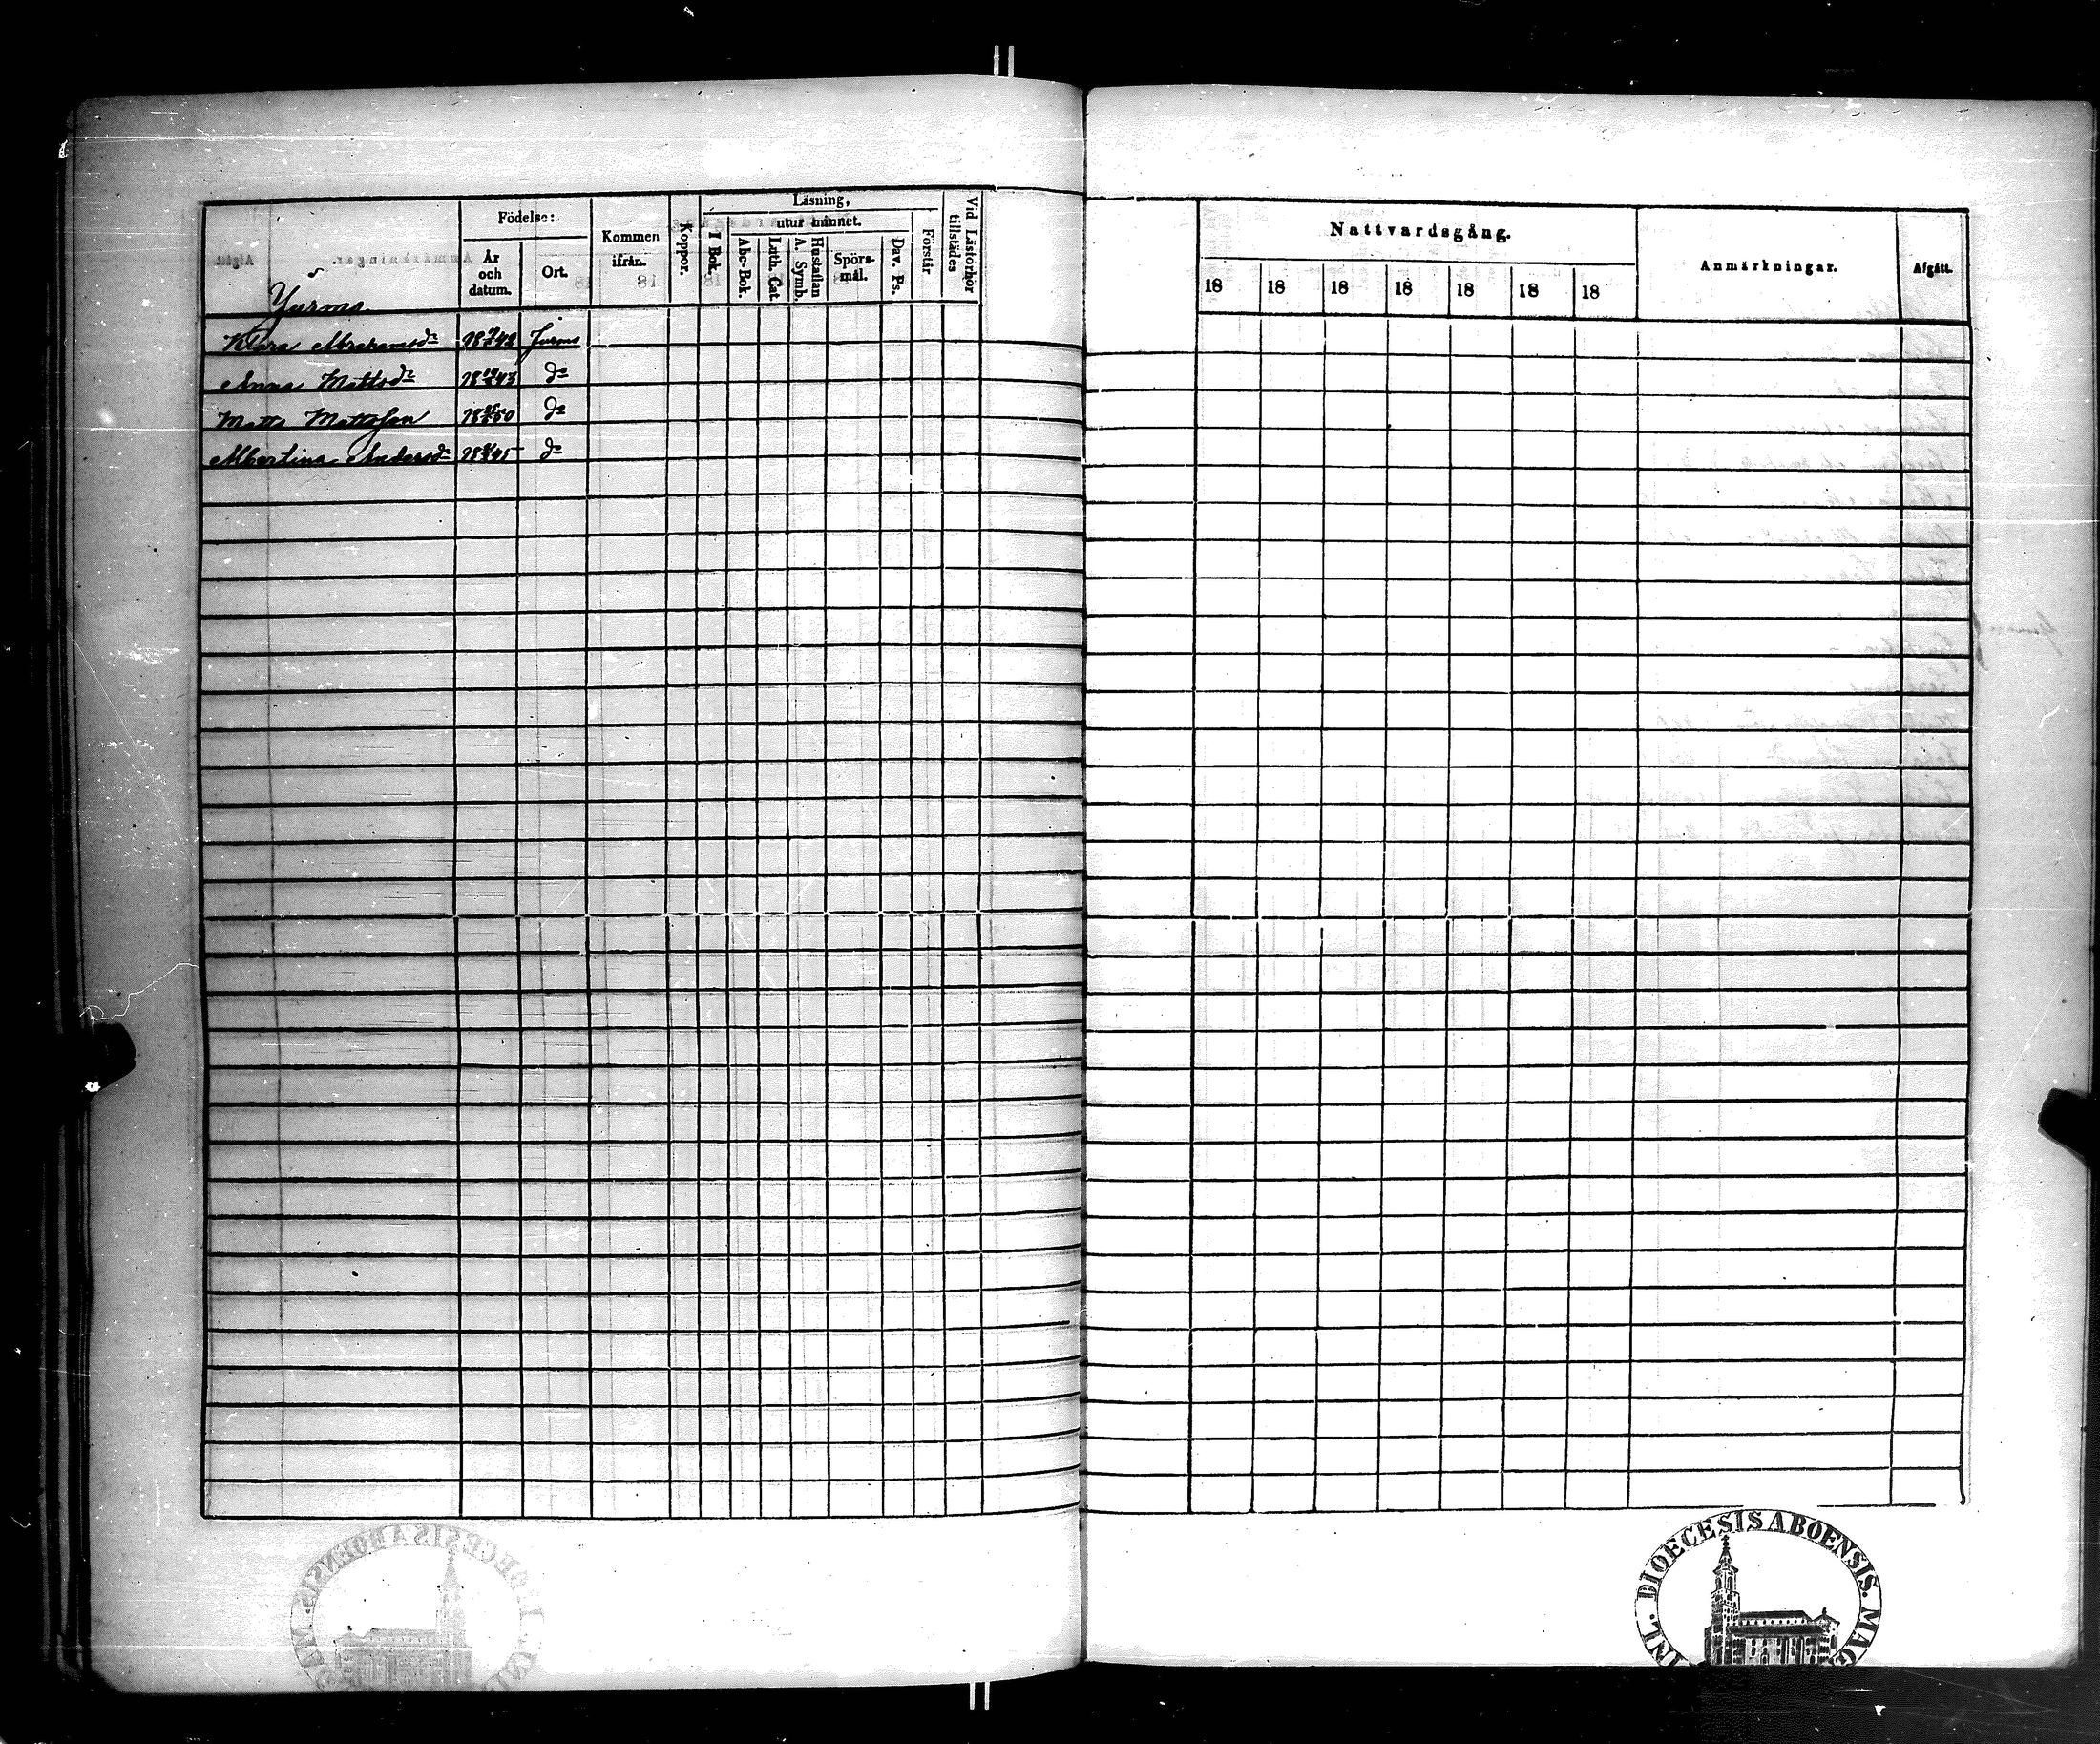 Födelse:
År och datum.
Ort.
Kommen ifrån.
Koppor.
Läsning,
I Bok.
utur minnet.
Abc-Bok.
Luth. Cat.
Hustaflan A. Symb.
Spörs-mål.
Dav. Ps.
Förstår
Vid Läsförhör tillstädes
Jurmo.
Klara Abrahamsdr Jurmo
Anna Mattsdr do
Matts Mattsson do
Albertina Andersdr do
Nattvardsgång.
18 18 18 18 18 18 18
Anmärkningar.
Afgått.
INL. DIOECESIS ABOENSIS. MAG